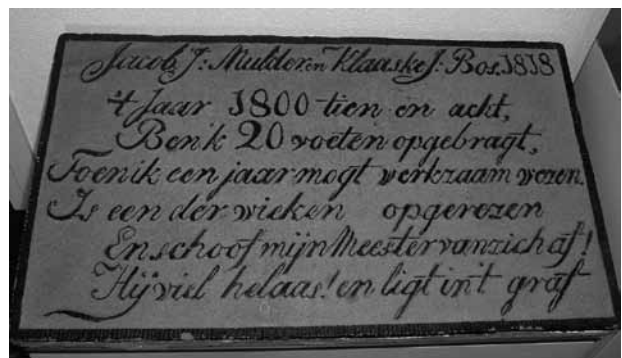 Jacob J: Mulder en Klaaske J: Bos. 1818
't Jaar 1800 tien en acht,
Ben k 20 voeten opgebragt,
Toen ik een jaar mogt werkzaam wezen.
Is een der wieken opgerezen
En schoof mijn Meester van zich af!
Hij viel helaas! en ligt in't graf